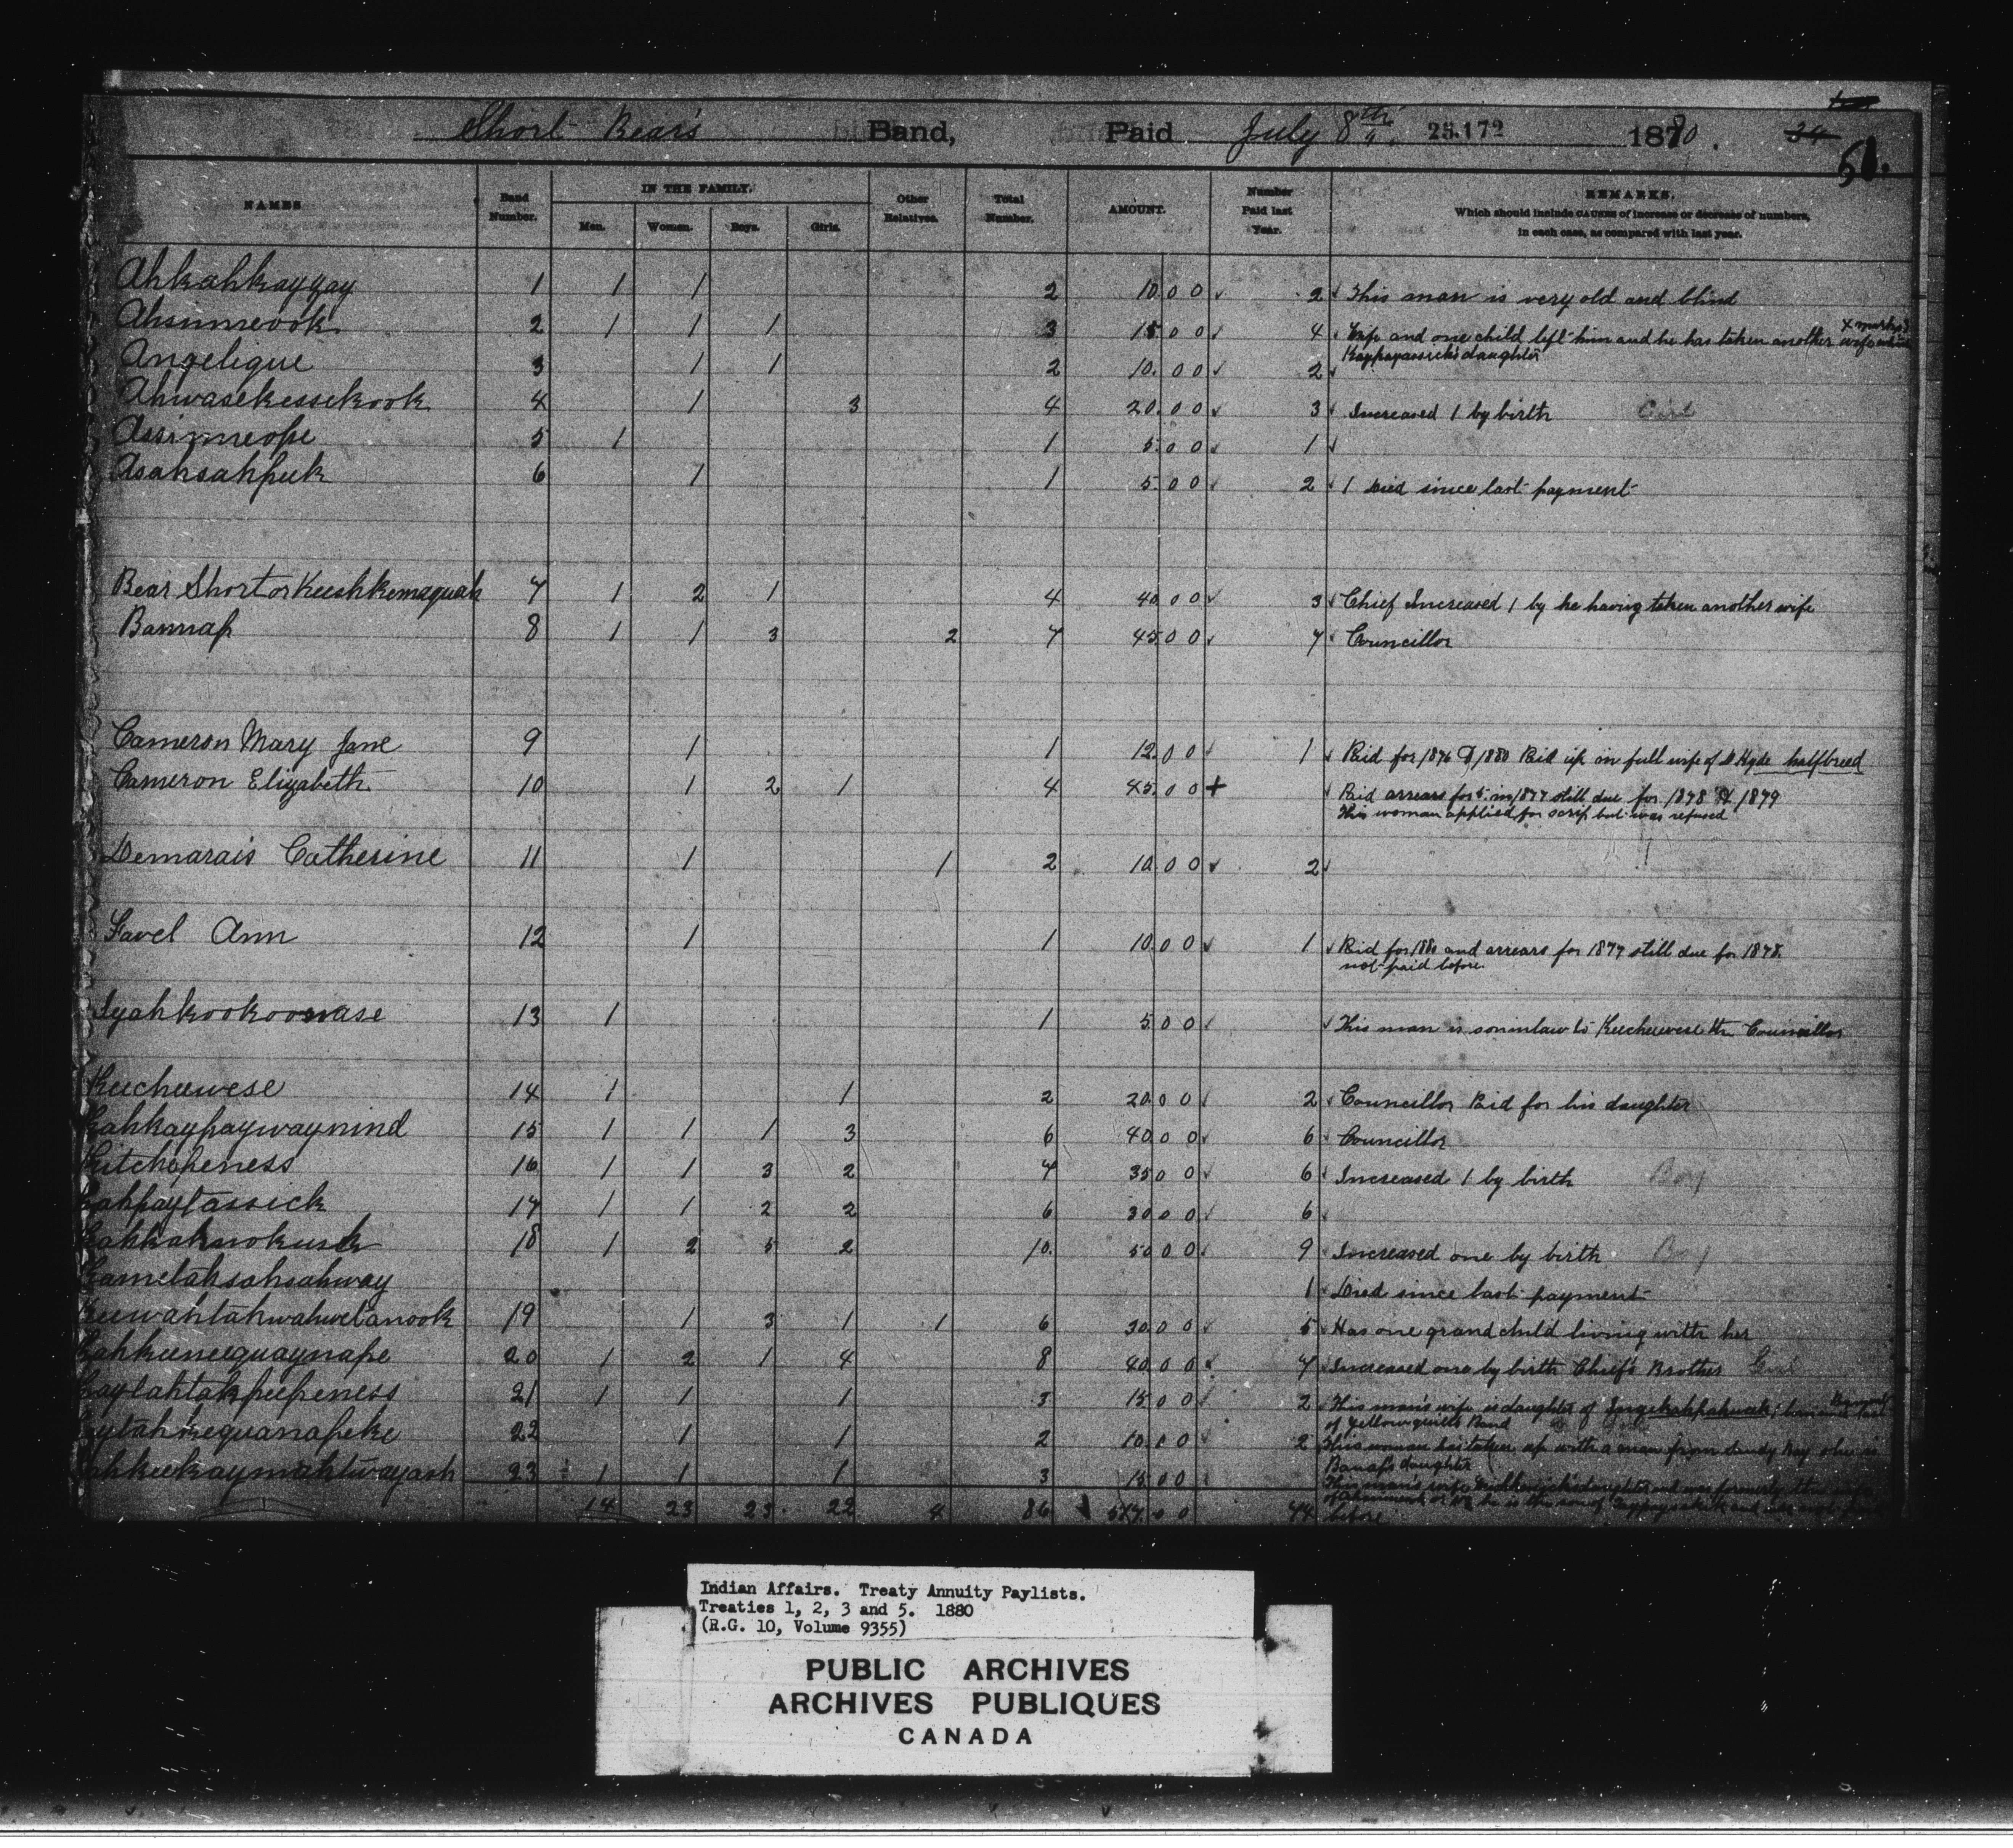 Short Bear's Band, Paid July 8th 25.172 1880.
24
51.
NAMES. Band Number. IN THE FAMILY. Men. Women. Boys. Girls. Other Relatives. Total Number. AMOUNT. Number Paid last Year. REMARKS.
Which should include CAUSES of increase or decrease of numbers,
in each case, as compared with last year.
Ahkahkayzay 1 1 1 2 10.00 2 This man is very old and blind
Ahsinneook 2 1 1 1 3 15.00 4 Wife and one child left him and he has taken another wife
Kaypayassick's daughter
Angelique 3 1 1 2 10.00 2
Ahwasekessekook 4 1 3 4 20.00 3 Increased 1 by birth Girl
Assinneope 5 1 1 5.00 1
Asahsahpuk 6 1 1 5.00 2 1 Died since last payment
Bear Short or Keeshkemaquah 7 1 2 1 4 40.00 3 Chief Increased 1 by he having taken another wife
Bannap 8 1 1 3 2 7 45.00 7 Councillor
Cameron Mary Jane 9 1 1 12.00 1 Paid for 1876 & 1880 Paid up in full wife of D Hyde halfbreed
Cameron Elizabeth 10 1 2 1 4 45.00 + Paid arrears for 5 in 1877 still due for 1878 & 1879
This woman applied for scrip but was refused
Demarais Catherine 11 1 1 2 10.00 2
Favel Ann 12 1 1 10.00 1 Paid for 1880 and arrears for 1877 still due for 1878.
not paid before.
Iyahkookoowase 13 1 1 5.00 This man is soninlaw to Keecheewese the Councillor
Keecheewese 14 1 1 2 20.00 2 Councillor Paid for his daughter
Kahkaypaywaynind 15 1 1 1 3 6 40.00 6 Councillor
Kitchepeness 16 1 1 3 2 7 35.00 6 Increased 1 by birth Boy
Kahpaytassick 17 1 1 2 2 6 30.00 6
Kahkahnokusk 18 1 2 5 2 10. 50.00 9 Increased one by birth Boy
Kametahsahsahway 1 Died since last payment
Keewahtahwahwetanook 19 1 3 1 1 6 30.00 5 Has one grandchild living with her
Kahkeeneequaynape 20 1 2 1 4 8 40.00 7 Increased one by birth Chief's Brother Girl
Kaytahtahpeepeness 21 1 1 1 3 15.00 2 This man's wife is daughter of
of Yellowquills Band
22 1 1 2 10.00 2 This woman has taken up with a man from Sandy Bay she is
Banap's daughter
23 1 1 1 3 15.00 This man's wife
14 23 23 22 4 86 517.00 44 before
Indian Affairs. Treaty Annuity Paylists.
Treaties 1, 2, 3 and 5. 1880
(R.G. 10, Volume 9355)
PUBLIC ARCHIVES
ARCHIVES PUBLIQUES
CANADA